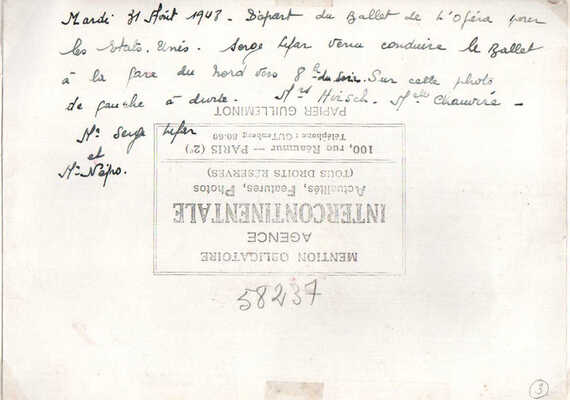 Mardi 31 Août 1948 - Départ du Ballet de L'Opéra pour
les Etats-Unis. Serge Lifar venu conduire le Ballet
à la gare du Nord vers 8h du soir. Sur cette photo
de gauche à droite. Mr Hirsch. Melle Chauviré -
Mr Serge Lifar
et
Mr Népo.
PAPIER GUILLEMINOT
MENTION OBLIGATOIRE
AGENCE
INTERCONTINENTALE
Actualités, Features, Photos
(TOUS DROITS RÉSERVÉS)
100, rue Réaumur — PARIS (2e)
Téléphone : GUTenberg 80.60
58237
3